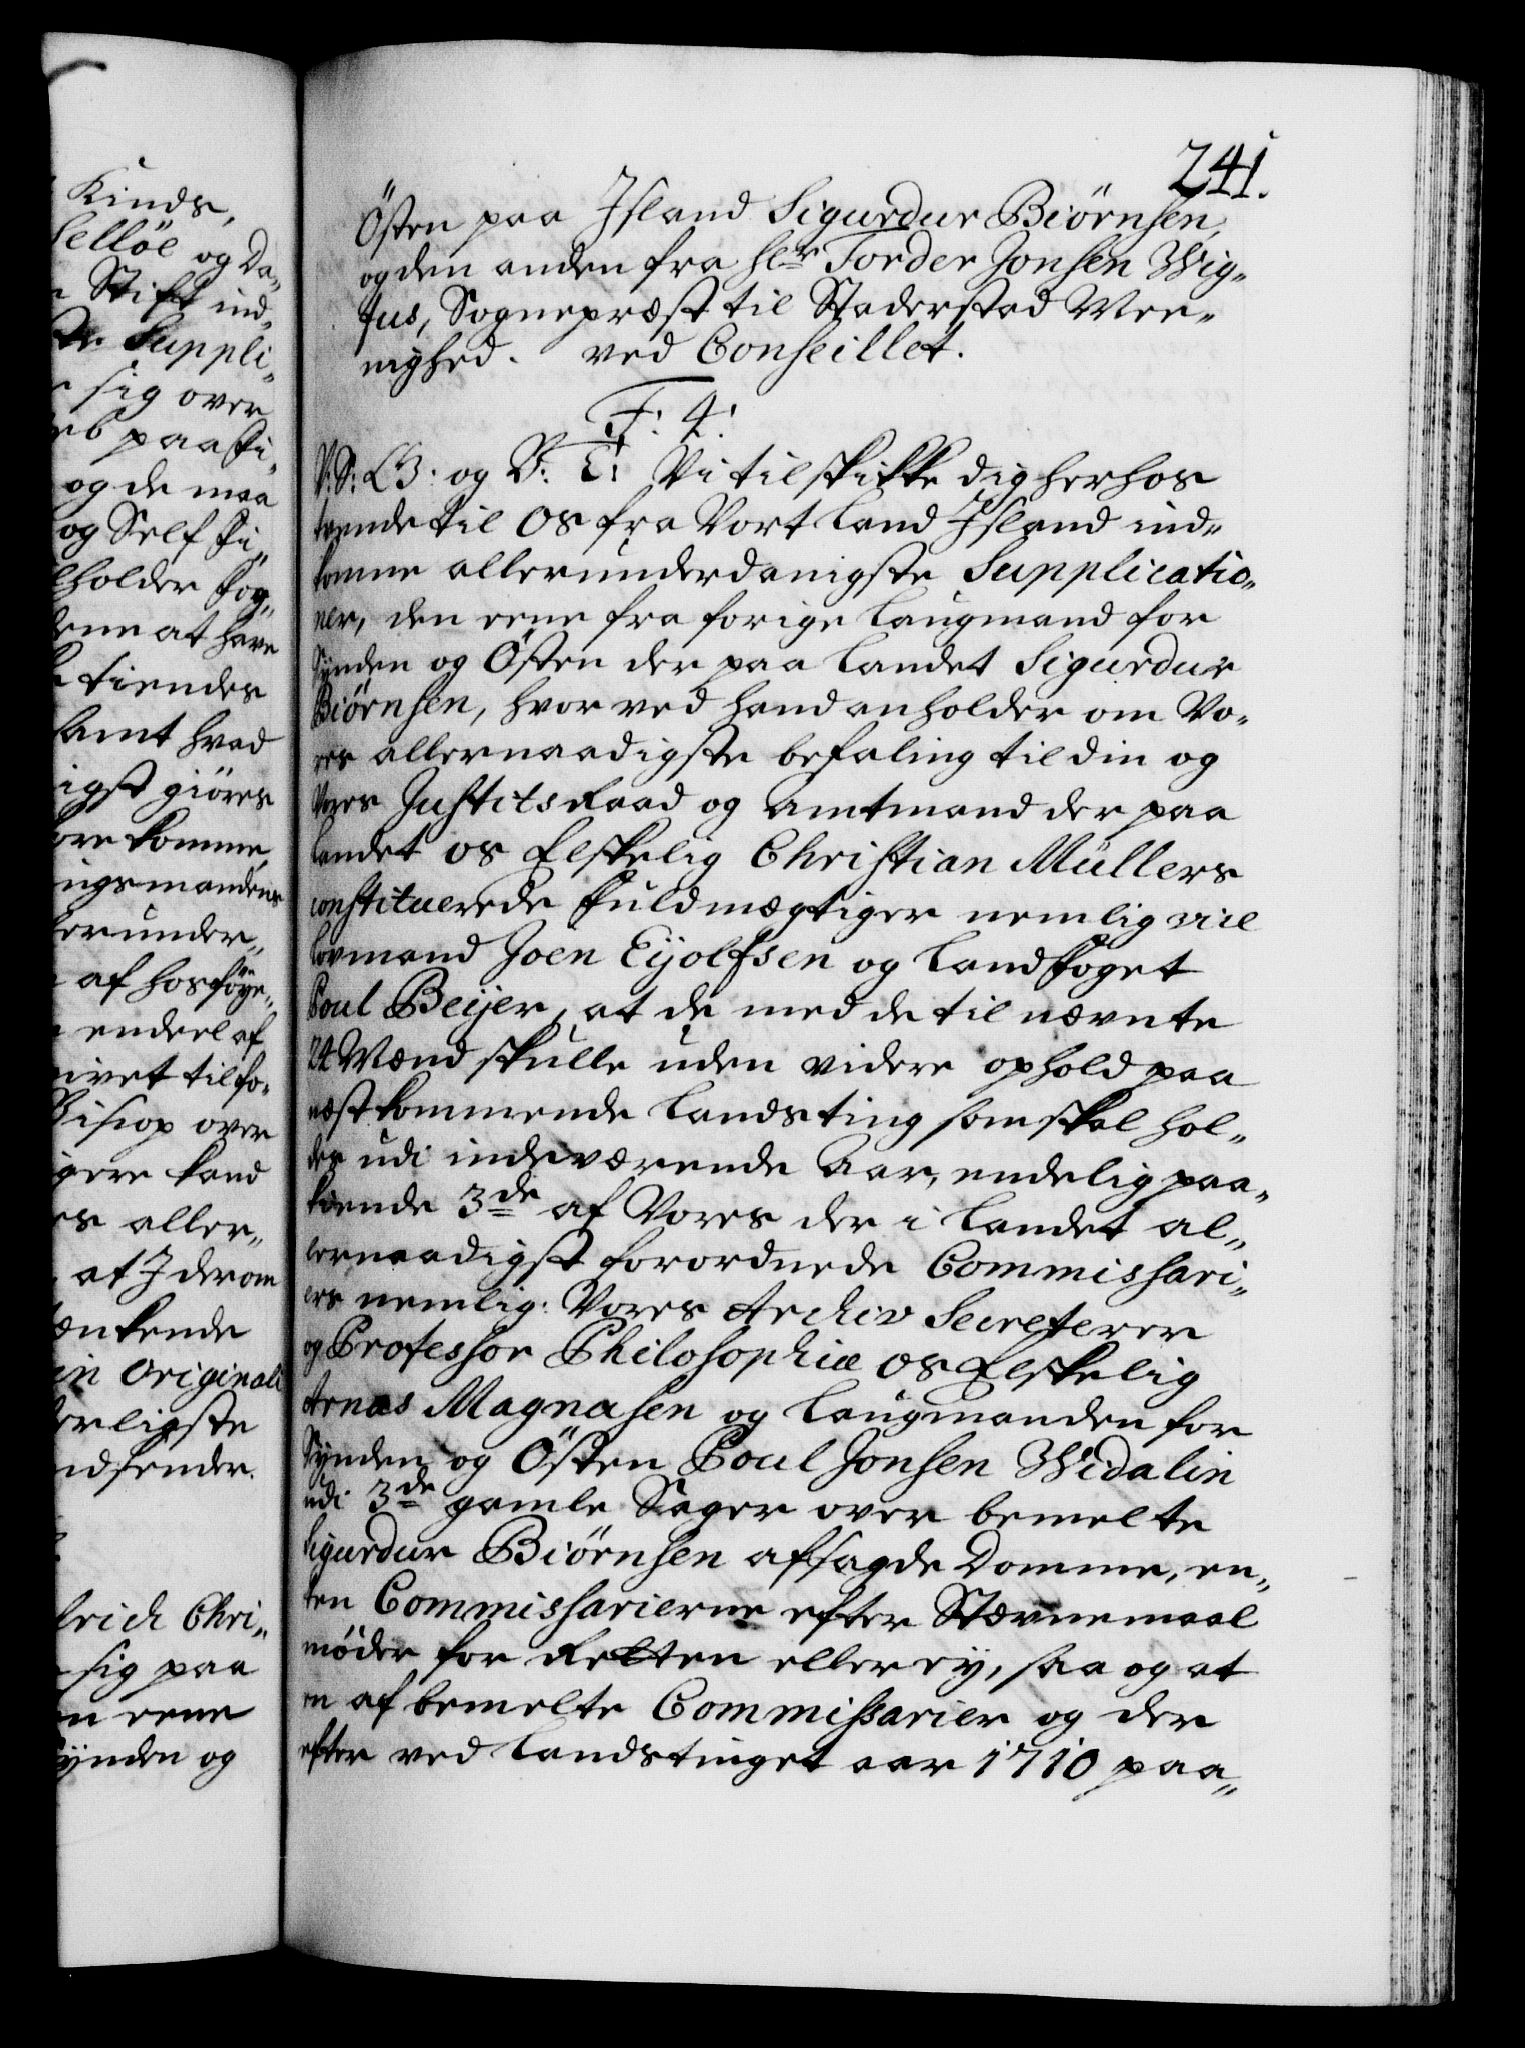 Kinds,
Selløe og Da„
Stift ind„
Suppli„
sig over
paa Ti„
og de maa
og Self Ti„
holder Fog„
at have
tiendes
samt hvad
igst giøres
forekomme,
ingsmandens
erunder„
af hosføye„
endeel af
ivet tilfo„
Bishop over
gere kand
es aller„
at I derom
tænkende
in Originali
erligste
indsender.
lrich Chri„
sig paa
en eene
Synden og
241.
Østen paa Island Sigurdur Biørnsen,
og den anden fra Hr Torder Jonsen Wig„
fus, Sognepræst til Staderstad Mee„
nighed. ved Conseillet.
F: 4:
V: S: G: og B: T: Vi tilskikke dig herhos
tvende til Os fra Vort Land Island ind„
komne allerunderdanigste Supplicatio„
ner, den eene fra forige Laugmand for
Synden og Østen der paa Landet Sigurdur
Biørnsen, hvorved hand anholder om Vo„
res allernaadigste befaling til din og
Vores JustitsRaad og Amtmand der paa
Landet os Elskelig Christian Müllers
constituerede Fuldmægtiger nemlig vice
Lovmand Joen Eyolfsen og Landfoget
Poul Beijer, at de med de til nævnte
24 Mænd skulle uden videre ophold paa
næstkommende Landsting som skal hol„
des udi indeværende Aar, endelig paa„
kiende 3de af Vores der i Landet al„
lernaadigst forordnede Commissari„
ers nemlig: Vores Archiv Secreterer
og Professor Philosophiæ os Elskelig
Arnas Magnæsen og Laugmanden for
Synden og Østen Poul Jonsen Widalin
udi 3de gamle Sager over bemelte
Sigurdur Biørnsen afsagde Domme, en„
ten Commissarierne efter Stævnemaal
møder for Retten eller ey, saa og at
en af bemelte Commissarier og der
efter ved Landstinget aar 1710 paa„